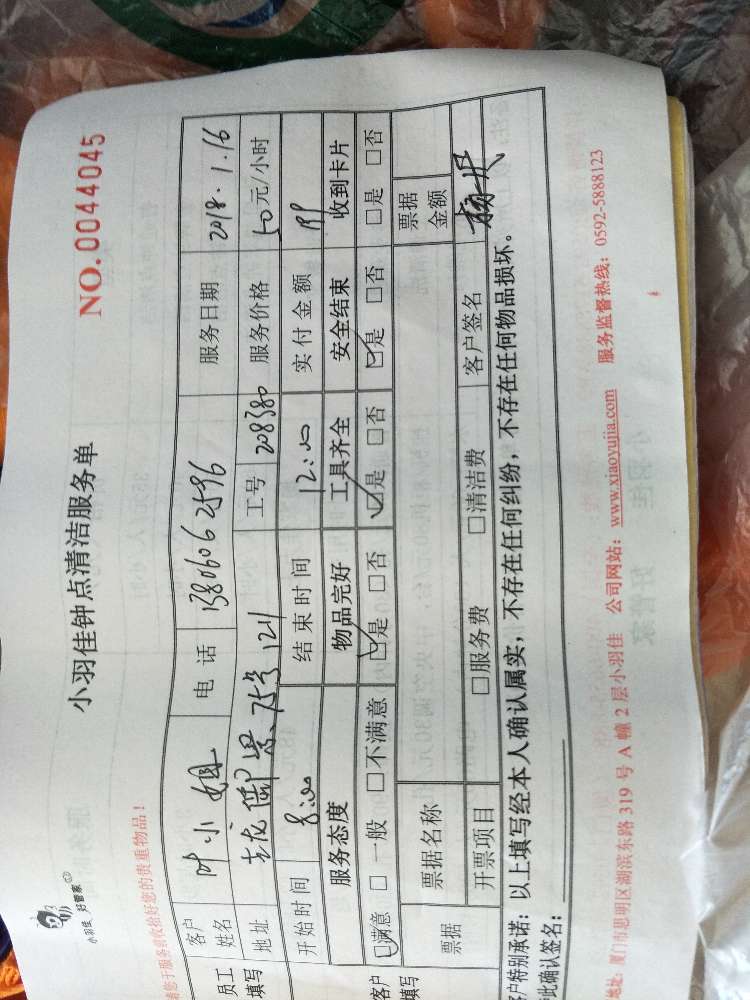 小羽佳 好管家
小羽佳钟点清洁服务单
NO.0044045
请您于服务前收拾好您的贵重物品！
员工填写
客户姓名 叶小姐 电话 13806062596 服务日期 2018.1.16
地址 御景 工号 208380 服务价格 50元/小时
开始时间 8:00 结束时间 12:00 实付金额
客户填写
服务态度 物品完好 工具齐全 安全结束 收到卡片
☑满意 □一般 □不满意 ☑是 □否 ☑是 □否 ☑是 □否 □是 □否
票据 票据名称 票据金额
开票项目 □服务费 □清洁费 客户签名
客户特别承诺：以上填写经本人确认属实，不存在任何纠纷，不存在任何物品损坏。
此确认签名：
地址：厦门市思明区湖滨东路 319 号 A 幢 2 层小羽佳 公司网站：www.xiaoyujia.com 服务监督热线：0592-5888123